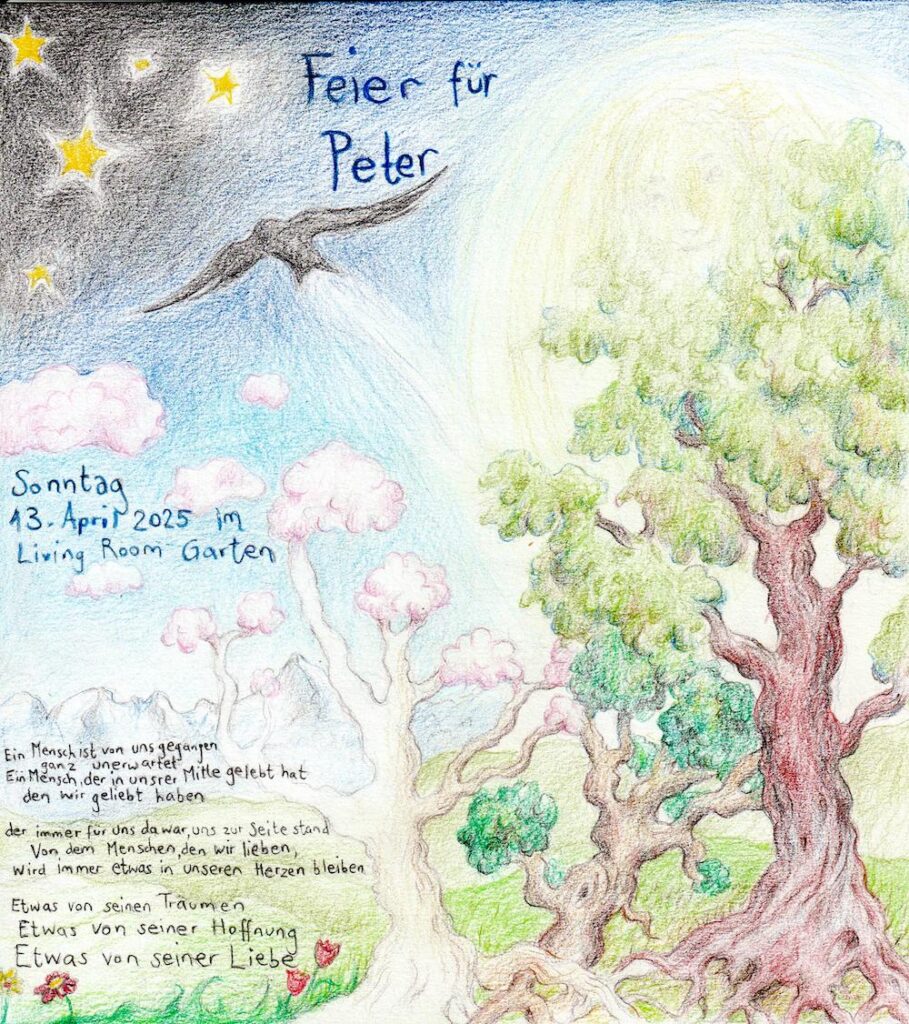 Feier für
Peter
Sonntag
13. April 2025 im
Living Room Garten
Ein Mensch ist von uns gegangen
ganz unerwartet
Ein Mensch, der in unsrer Mitte gelebt hat
den wir geliebt haben
der immer für uns da war, uns zur Seite stand
Von dem Menschen, den wir lieben,
wird immer etwas in unseren Herzen bleiben
Etwas von seinen Träumen
Etwas von seiner Hoffnung
Etwas von seiner Liebe